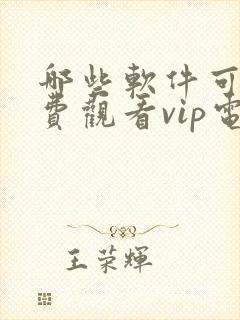 哪些軟件可
費觀看vip電
王荣輝